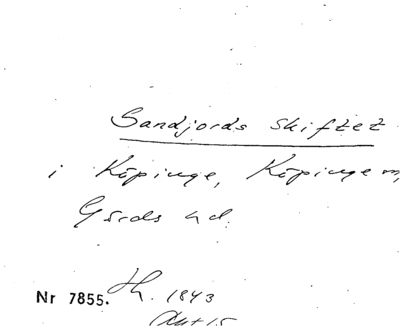 Sandjords skiftet
i Köpinge, Köpinge m,
Gärds hd.
Nr 7855. Th. 1843
Akt 15